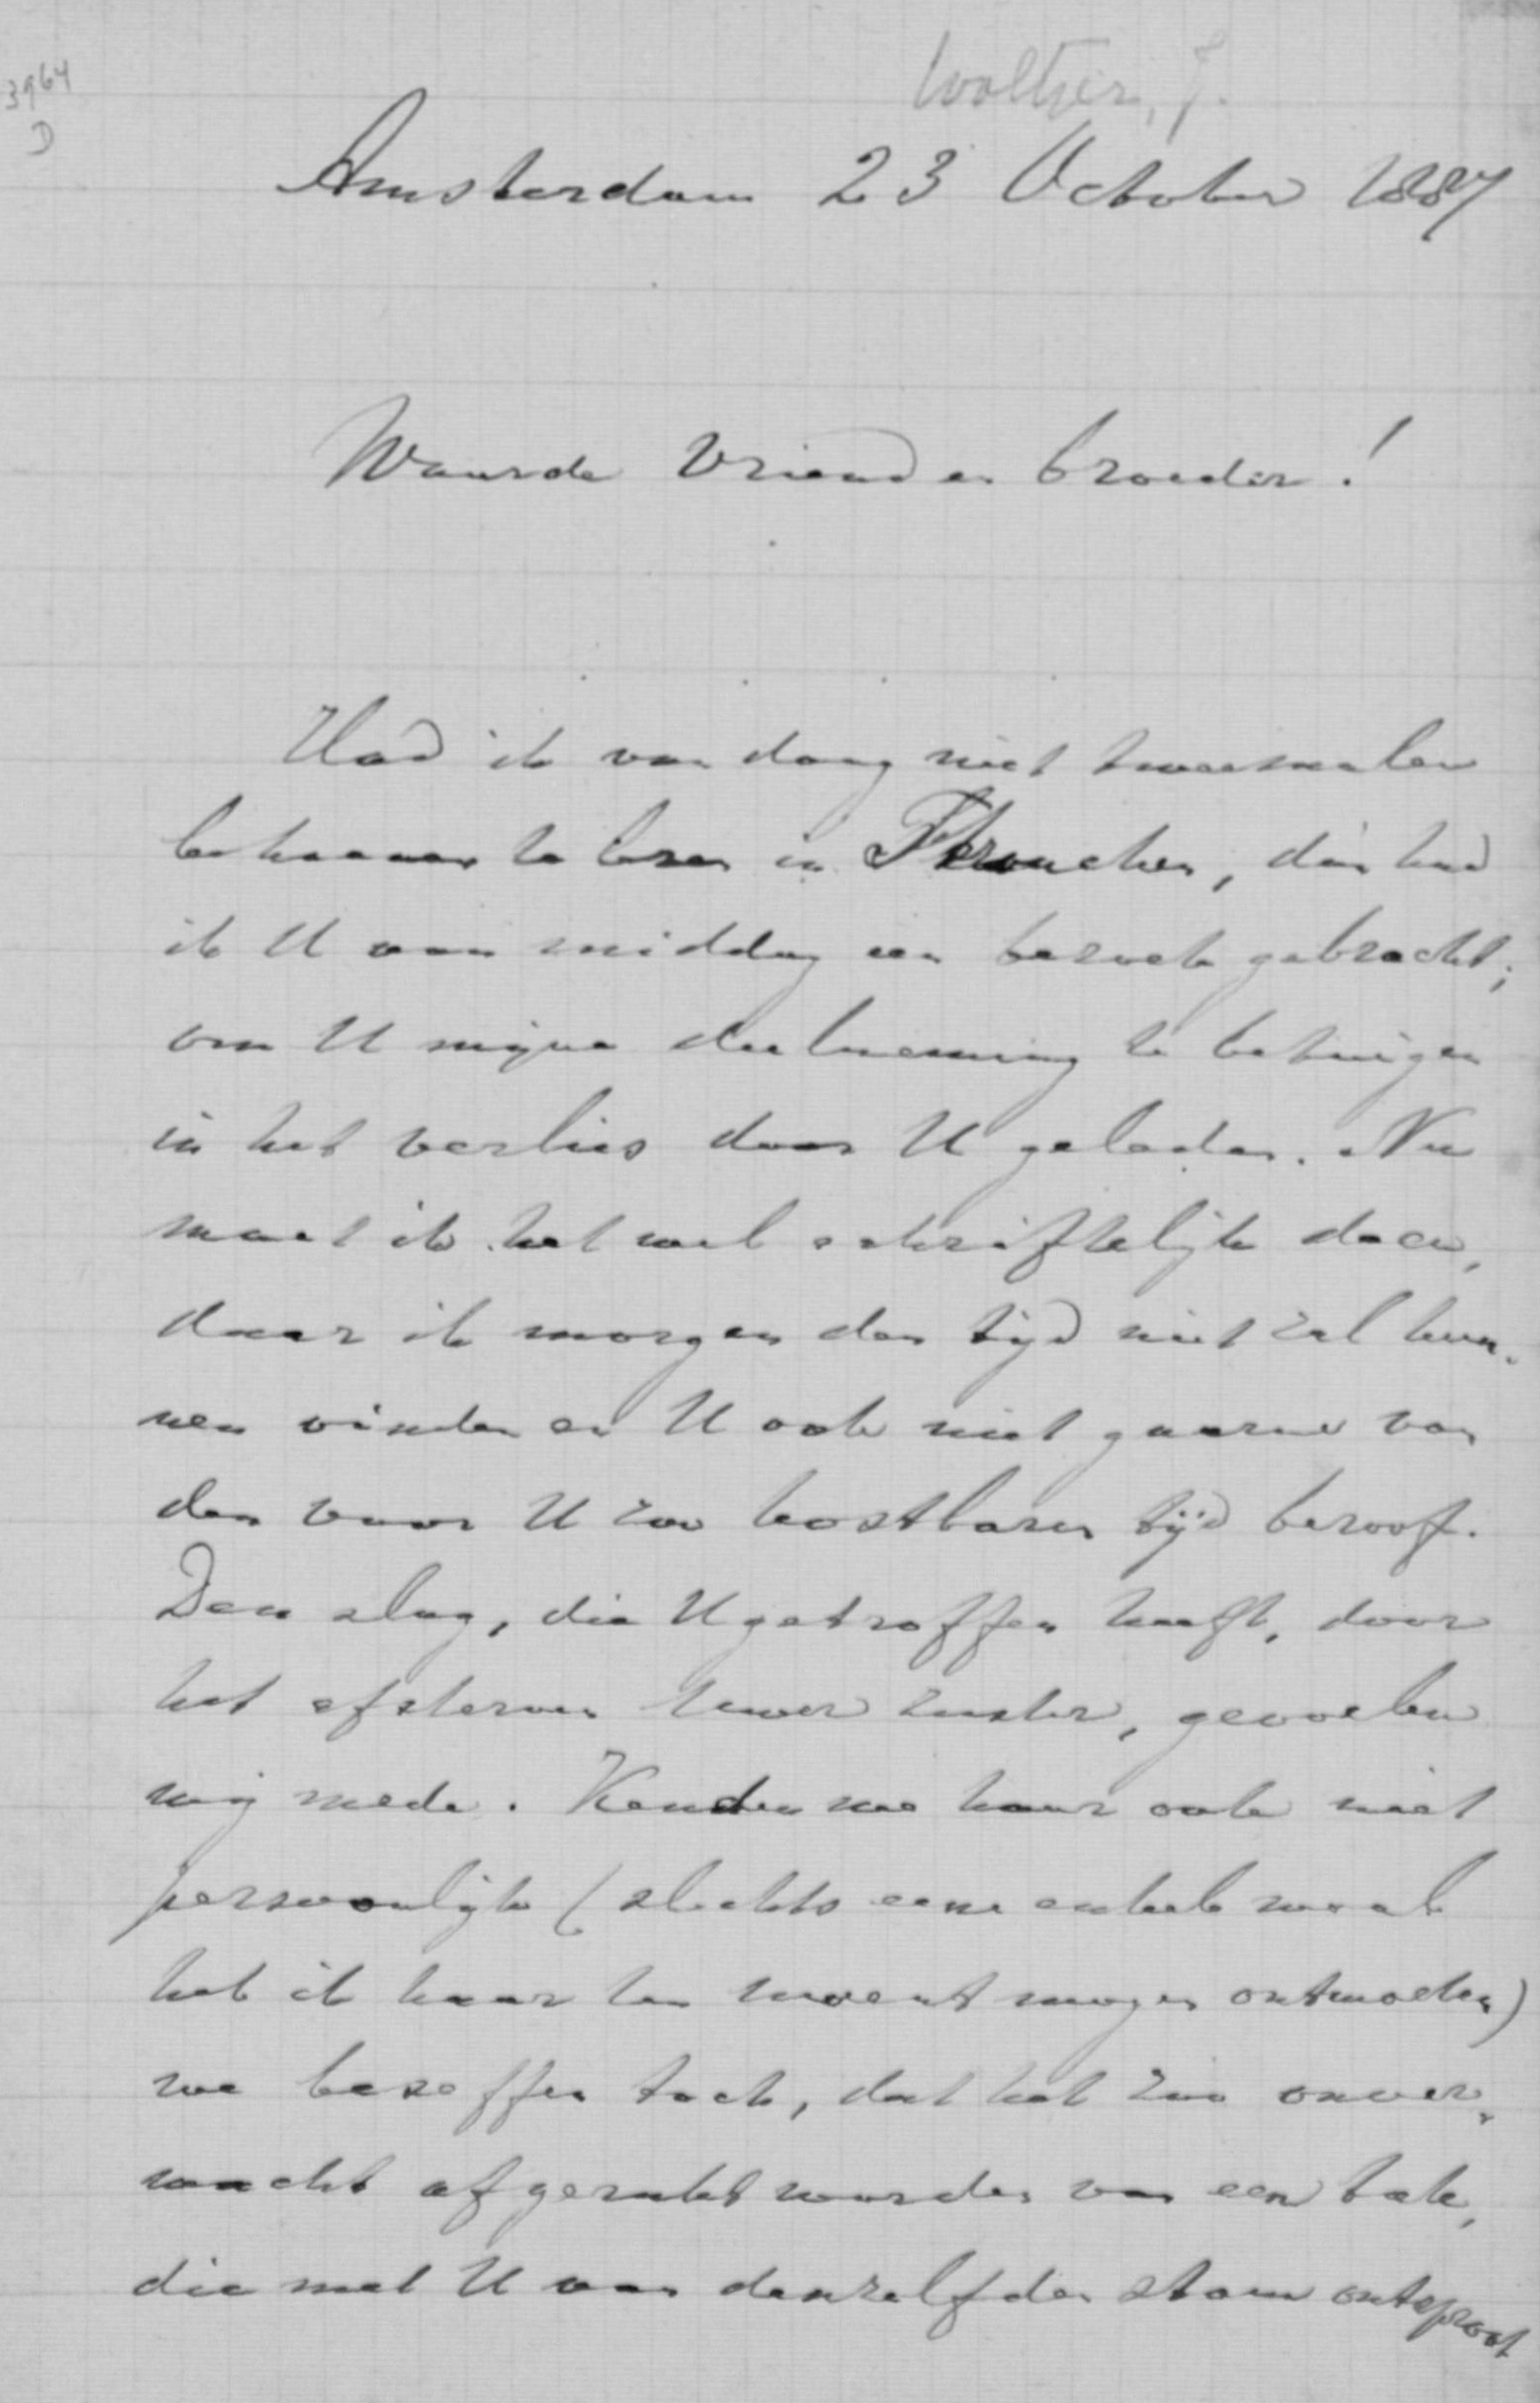 3964
D
Woltjer, J.
Amsterdam 23 October 1887
Waarde Vriend en broeder!
Had ik van daag niet tweemalen
behoeven te lezen in, dan had
ik U van middag een bezoek gebracht,
om U mijne deelneming te betuigen
in het verlies door U geleden. Nu
moet ik het wel schriftelijk doen,
daar ik morgen den tijd niet zal kun-
nen vinden en U ook niet gaarne van
den voor U zoo kostbaren tijd beroof.
Den slag, die U getroffen heeft, door
het afsterven Uwer zuster, gevoelen
wij mede. Kenden we haar ook niet
persoonlijk (slechts eene enkele maal
heb ik haar ten mogen ontmoeten)
we beseffen toch, dat het zoo onver-
wacht afgerukt worden van een tak,
die met U van denzelfden stam ontsproot